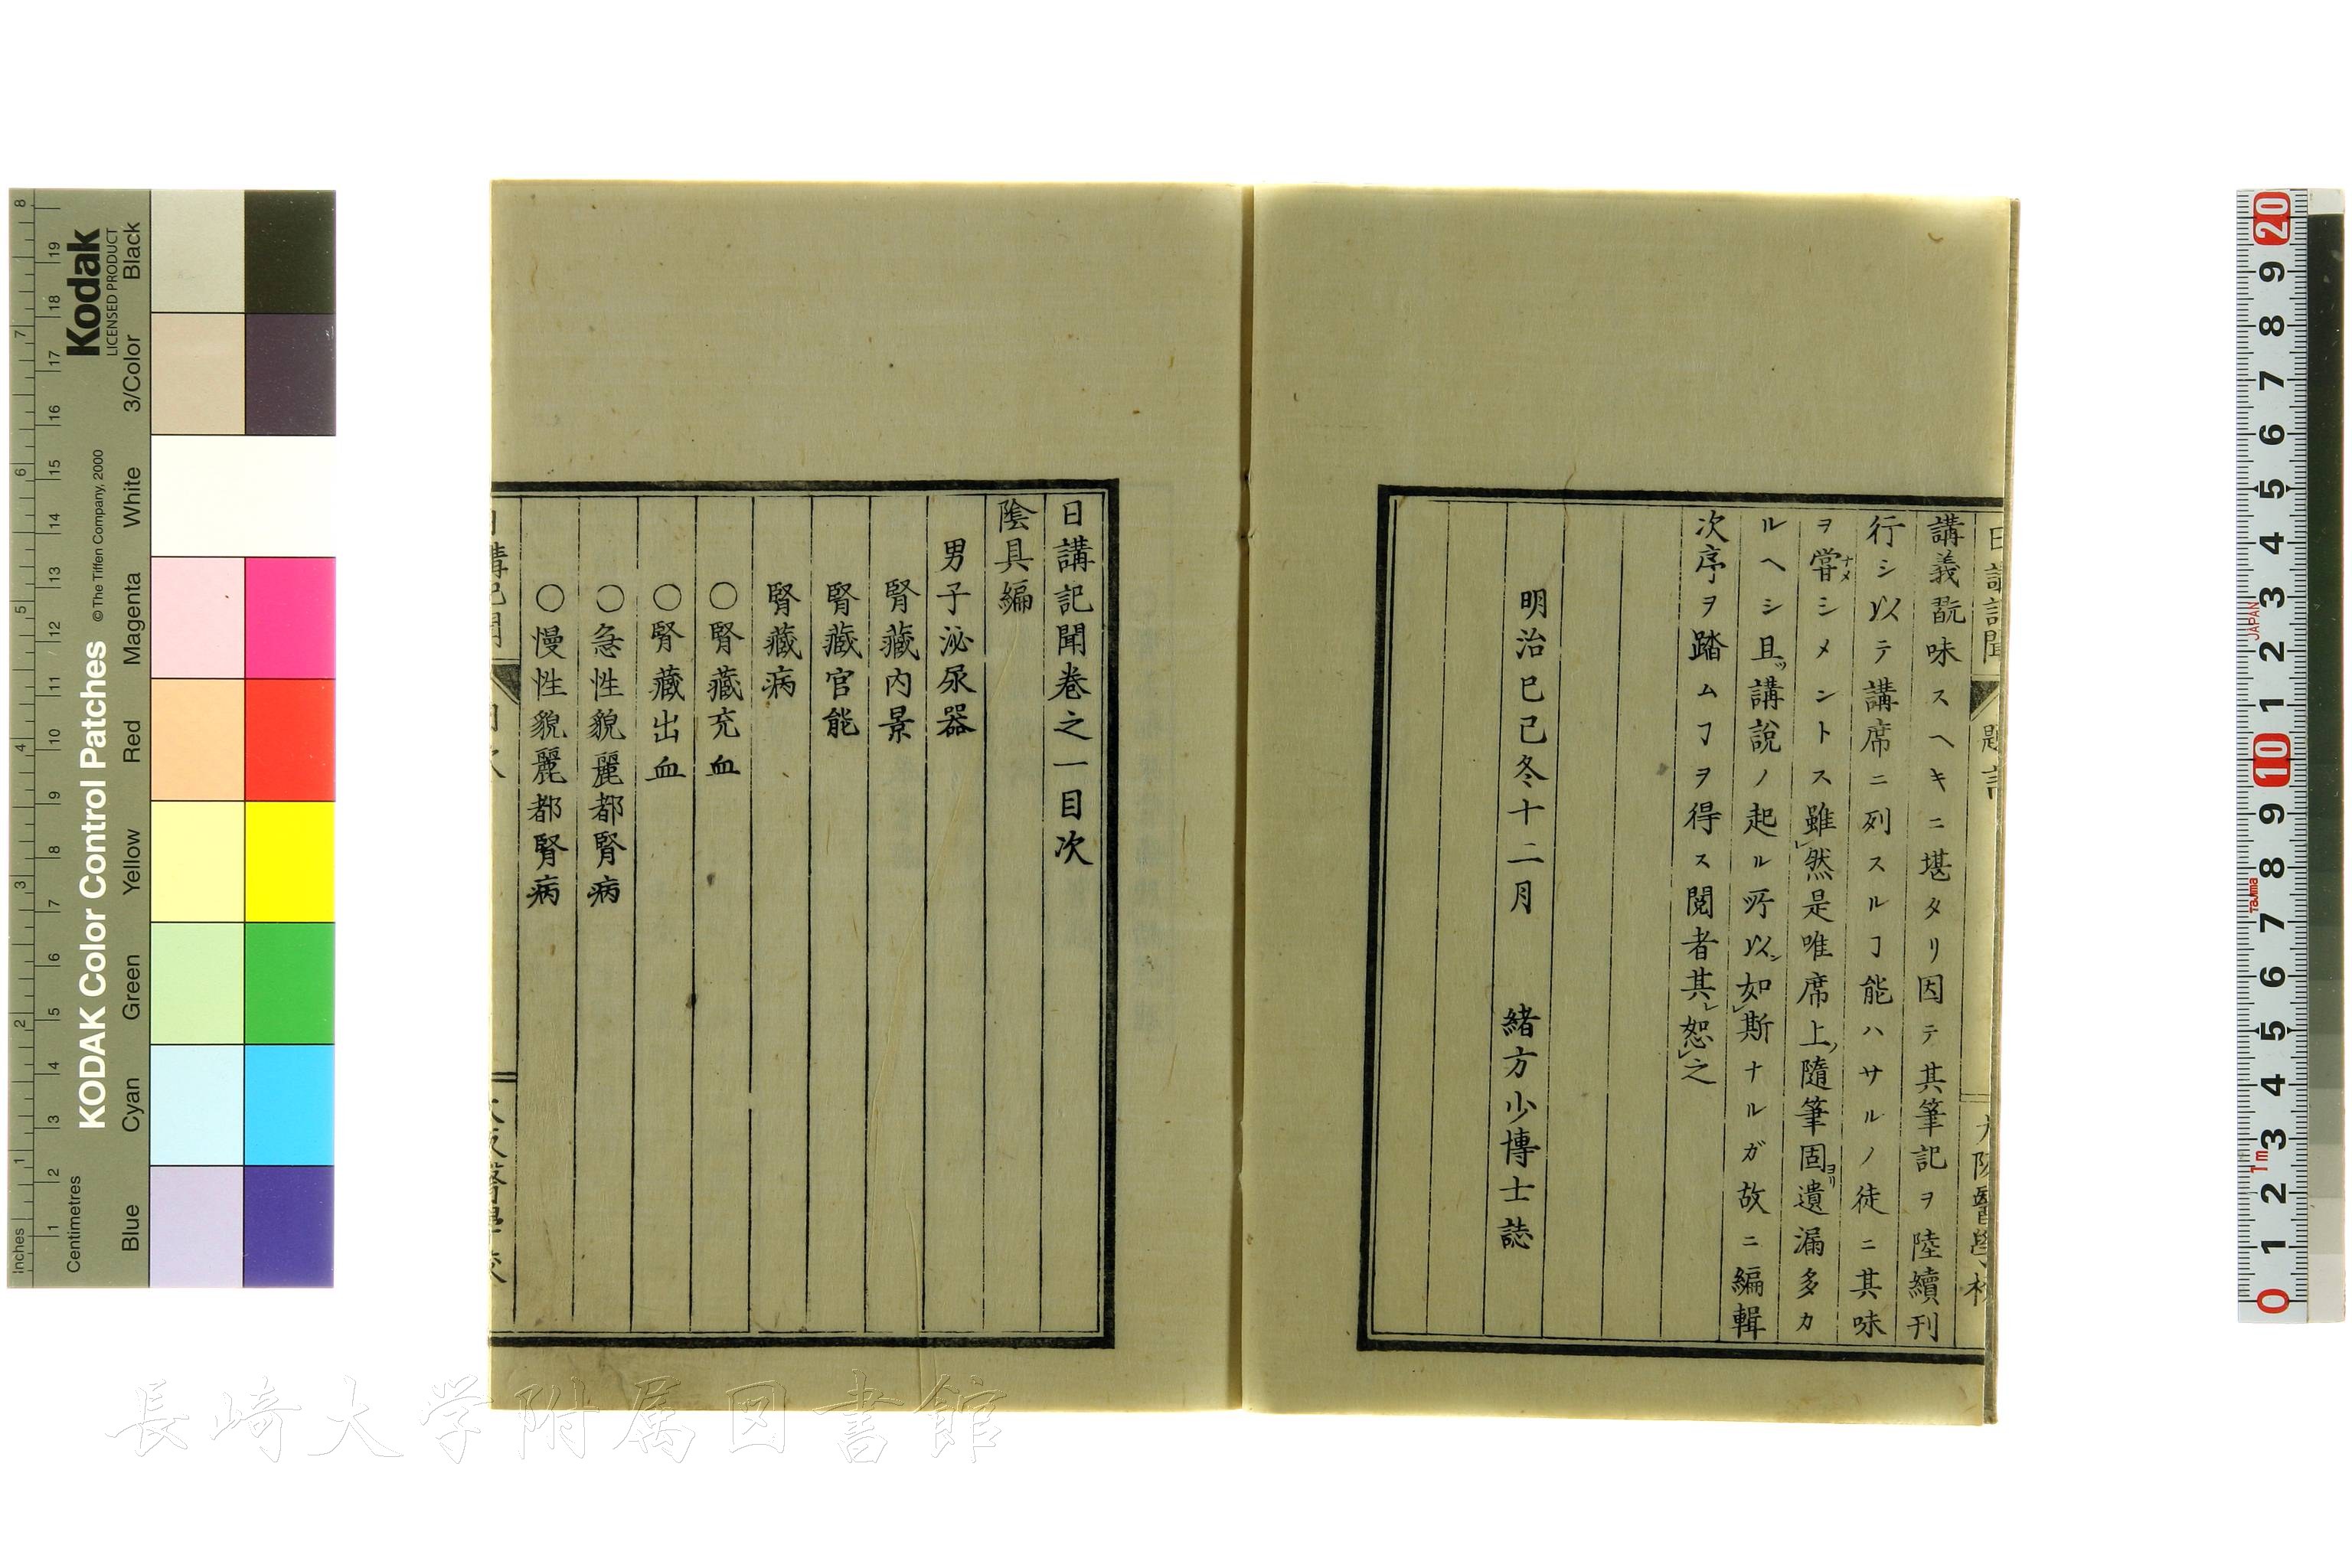 講義翫味スヘキニ堪タリ因テ其筆記ヲ陸續刊
行シ以テ講席ニ列スルヿ能ハサルノ徒ニ其味
ヲ甞ナメシメントス雖レ然是唯席上ノ隨筆固ヨリ遺漏多カ
ルヘシ且ツ講說ノ起ル所以ン如レ斯ナルガ故ニ編輯
次序ヲ踏ムヿヲ得ス閲者其レ恕レ之
明治己巳冬十二月 緒方少博士誌
日講記聞卷之一目次
陰具編
男子泌尿器
腎藏内景
腎藏官能
腎藏病
〇腎藏充血
〇腎藏出血
〇急性貌麗都腎病
〇慢性貌麗都腎病
日講記聞 題言
大阪醫學校
日講記聞 目次
大阪醫學校
長崎大学附属図書館
KODAK Color Control Patches
© The Tiffen Company, 2000
Kodak
LICENSED PRODUCT
Inches
Centimetres
Blue Cyan Green Yellow Red Magenta White 3/Color Black
1 2 3 4 5 6 7 8
1 2 3 4 5 6 7 8 9 10 11 12 13 14 15 16 17 18 19
0 1 2 3 4 5 6 7 8 9 10 1 2 3 4 5 6 7 8 9 20
1m
Tajima
JAPAN